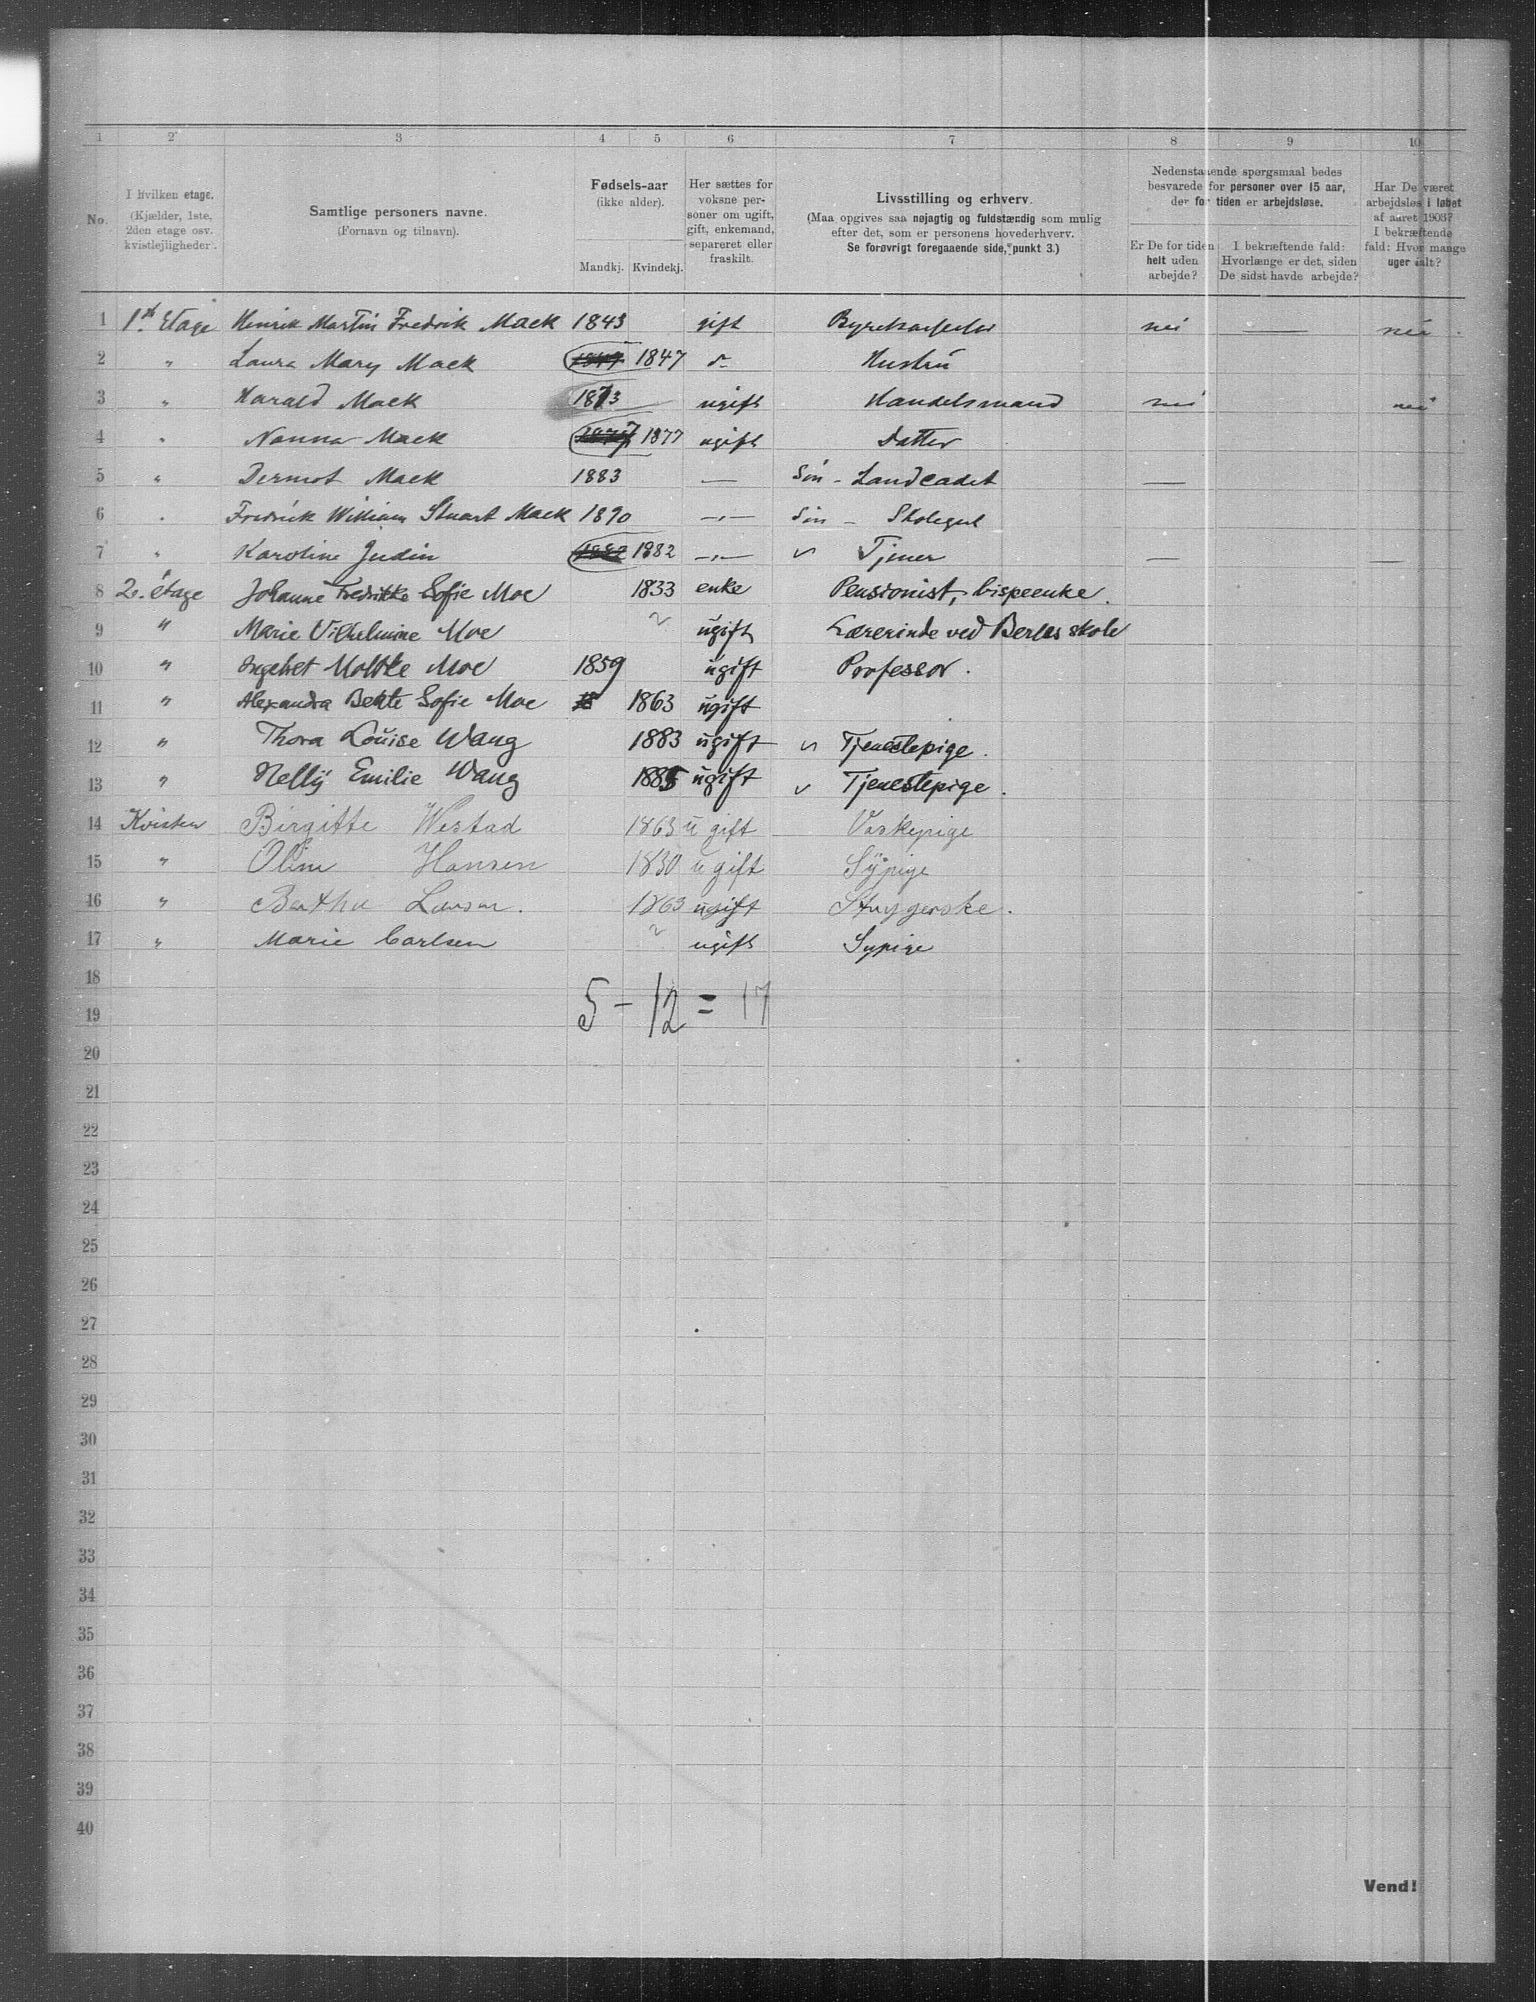 1 2 3 4 5 6 7 8 9 10
No.
I hvilken etage.
(Kjælder, 1ste,
2den etage osv.
kvistlejligheder).
Samtlige personers navne.
(Fornavn og tilnavn).
Fødsels-aar
(ikke alder).
Mandkj. Kvindekj.
Her sættes for
voksne per-
soner om ugift,
gift, enkemand,
separeret eller
fraskilt.
Livsstilling og erhverv.
(Maa opgives saa nøjagtig og fuldstændig som mulig
efter det, som er personens hovederhverv.
Se forøvrigt foregaaende side, punkt 3.)
Nedenstaaende spørgsmaal bedes
besvarede for personer over 15 aar,
der for tiden er arbejdsløse.
Er De for tiden
helt uden
arbejde?
I bekræftende fald:
Hvorlænge er det, siden
De sidst havde arbejde?
Har De været
arbejdsløs i løbet
af aaret 1903?
I bekræftende
fald: Hvor mange
uger ialt?
1 1st Etage Henrik Martin Fredrik Mack 1843 gift nei — nei
2 " Laura Mary Mack 1847 d- Hustru
3 " Harald Mack 1873 ugift Handelsmand nei nei
4 " Nanna Mack 1877 1877 ugift Datter
5 " Dermot Mack 1883 — Søn - Landcadet —
6 " Fredrik William Stuart Mack 1890 —"— Søn -
7 " Karoline Judin 1882 1882 —"— v Tjener — —
8 2. etage Johanne Fredrikke Sofie Moe 1833 enke Pensionist, bispeenke.
9 " Marie Vilhelmine Moe ugift Lærerinde ved Berles skole
10 " Ingebret Moltke Moe 1859 ugift Professor.
11 " Alexandra Bente Sofie Moe 18 1863 ugift
12 " Thora Louise Wang 1883 ugift v Tjenestepige.
13 " Nelly Emilie Wang 1885 ugift v Tjenestepige.
14 Kvisten Birgitte Westad 1863 ugift Vaskepige
15 " Oline Hansen 1830 ugift Sypige
16 " Bertha Larsen. 1863 ugift Strygerske.
17 " Marie Carlsen ugift Sypige
18
5 - 12 = 17
19
20
21
22
23
24
25
26
27
28
29
30
31
32
33
34
35
36
37
38
39
40
Vend!